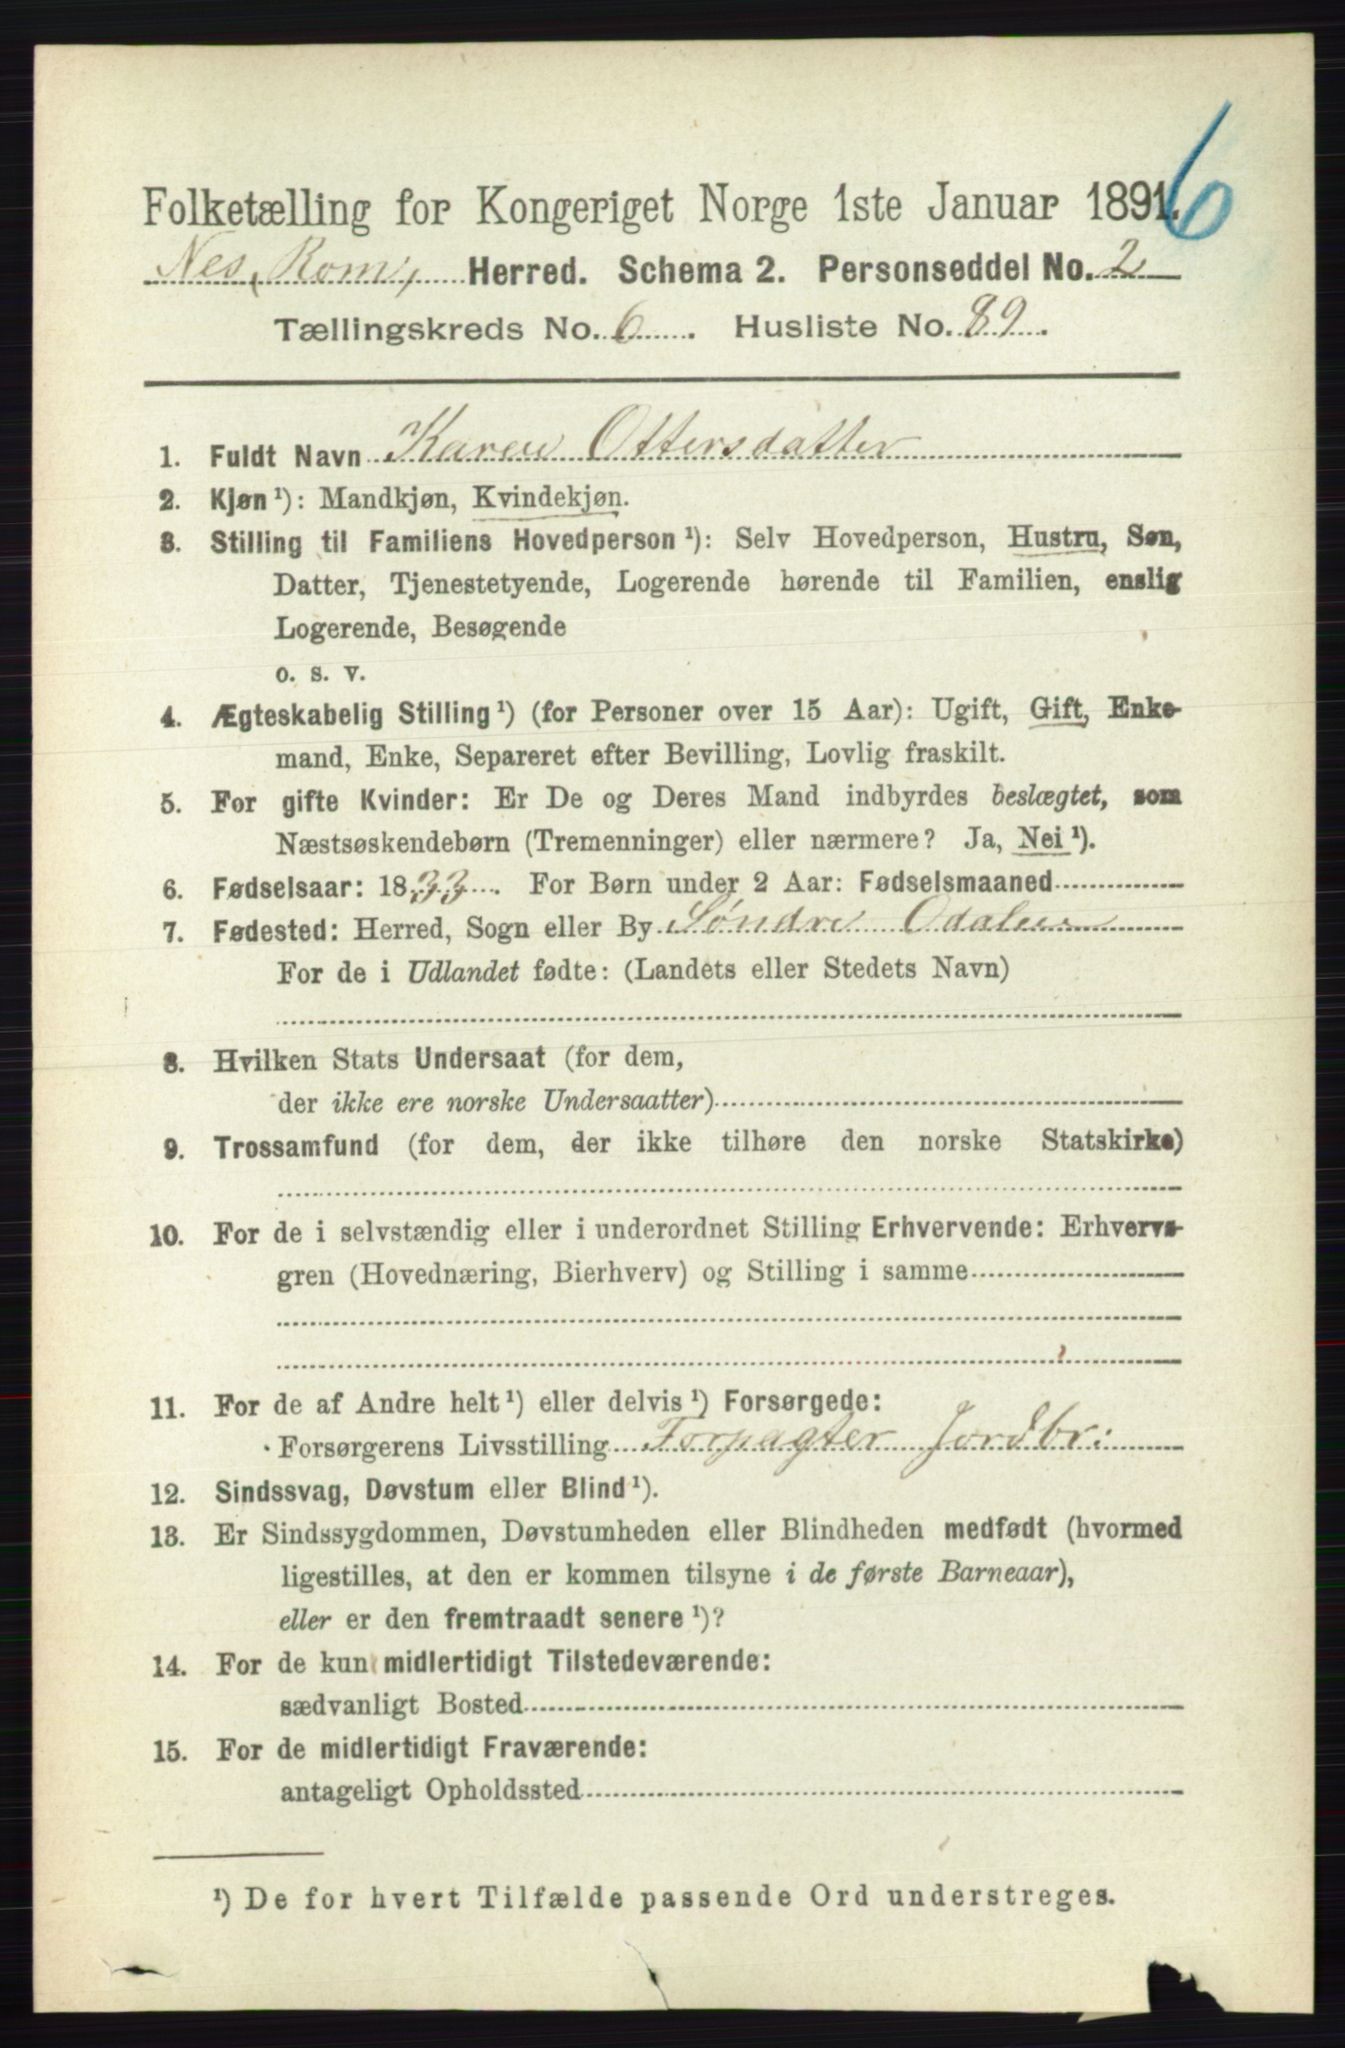 6
Folketælling for Kongeriget Norge 1ste Januar 1891.
Nes, Rom, Herred. Schema 2. Personseddel No. 2
Tællingskreds No. 6. Husliste No. 89.
1. Fuldt Navn Karen Ottersdatter
2. Kjøn¹): Mandkjøn, Kvindekjøn.
3. Stilling til Familiens Hovedperson¹): Selv Hovedperson, Hustru, Søn,
Datter, Tjenestetyende, Logerende hørende til Familien, enslig
Logerende, Besøgende
o. s. v.
4. Ægteskabelig Stilling¹) (for Personer over 15 Aar): Ugift, Gift, Enke-
mand, Enke, Separeret efter Bevilling, Lovlig fraskilt.
5. For gifte Kvinder: Er De og Deres Mand indbyrdes beslægtet, som
Næstsøskendebørn (Tremenninger) eller nærmere? Ja, Nei¹).
6. Fødselsaar: 1833. For Børn under 2 Aar: Fødselsmaaned
7. Fødested: Herred, Sogn eller By Søndre Odalen
For de i Udlandet fødte: (Landets eller Stedets Navn)
8. Hvilken Stats Undersaat (for dem,
der ikke ere norske Undersaatter)
9. Trossamfund (for dem, der ikke tilhøre den norske Statskirke)
10. For de i selvstændig eller i underordnet Stilling Erhvervende: Erhvervs-
gren (Hovednæring, Bierhverv) og Stilling i samme
11. For de af Andre helt¹) eller delvis¹) Forsørgede:
Forsørgerens Livsstilling Forpagter Jordbr:
12. Sindssvag, Døvstum eller Blind¹).
13. Er Sindssygdommen, Døvstumheden eller Blindheden medfødt (hvormed
ligestilles, at den er kommen tilsyne i de første Barneaar),
eller er den fremtraadt senere¹)?
14. For de kun midlertidigt Tilstedeværende:
sædvanligt Bosted
15. For de midlertidigt Fraværende:
antageligt Opholdssted
¹) De for hvert Tilfælde passende Ord understreges.